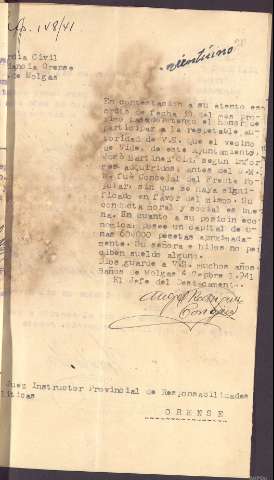 Exp. 148/41
veintiuno
rdia Civil
dancia Orense
de Molgas
En contestación a su atento es
crito de fecha 19 del mes pro
ximo pasado tengo el honor de
participar a la respetable au
toridad de V.S. que el vecino
de Vide, de este Ayuntamiento,
José Martinez Cid, segun infor
mes adquiridos, antes del G.M.N.
fue Concejal del Frente Po
pular, sin que se haya signi
ficado en favor del mismo. Su
conducta moral y social es bue
na. En cuanto a su posición eco
nomica; posee un capital de u
nas 60.000 pesetas aproximada
mente. Su señora e hijos no per
ciben sueldo alguno.
Dios guarde a V.S. muchos años.
Baños de Molgas 4 Octbre 1.941
El Jefe del Destacament
Angel Rodriguez
Juez Instructor Provincial de Responsabilidades
líticas
ORENSE